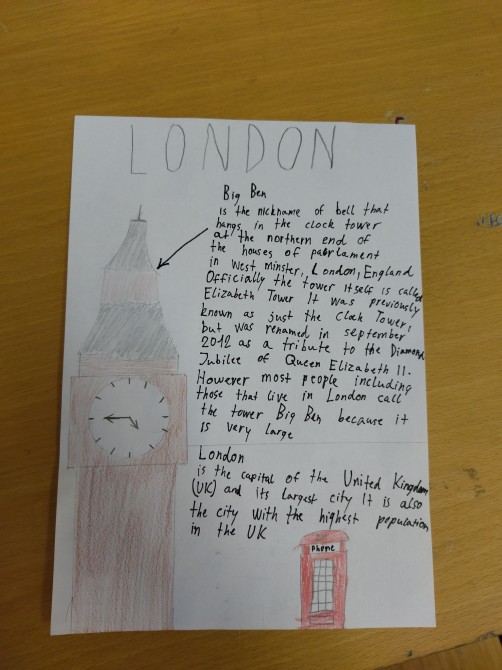 LONDON
Big Ben
is the nickname of bell that
hangs in the clock tower
at the northern end of
the houses of pabrlament
in West minster, London, England
Officially the tower itself is called
Elizabeth Tower It was previously
known as just the Clock Tower,
but was renamed in september
2012 as a tribute to the Diamond
Jubilee of Queen Elizabeth II.
However most people including
those that live in London call
the tower Big Ben because it
is very large
London
is the capital of the United Kingdom
(UK) and its largest city It is also
the city with the highest population
in the UK
Phone